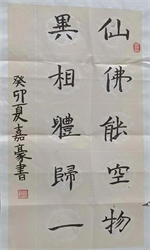 仙佛能空物
異相體歸一
癸卯夏嘉豪書